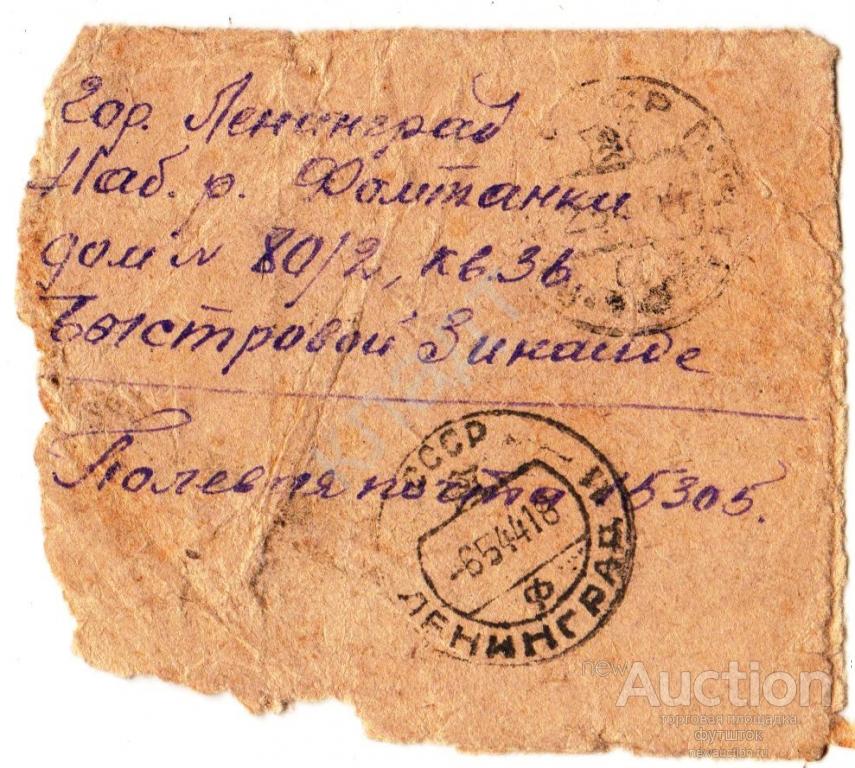 гор. Ленинград
Наб. р. Фонтанки
дом № 80/2, кв. 3в,
Быстровой Зинаиде
Полевая почта 15305.
СССР
-654418
Ф
ЛЕНИНГРАД 14
СССР
КЛУ
newAuction
торговая площадка
футшток
newauction.ru